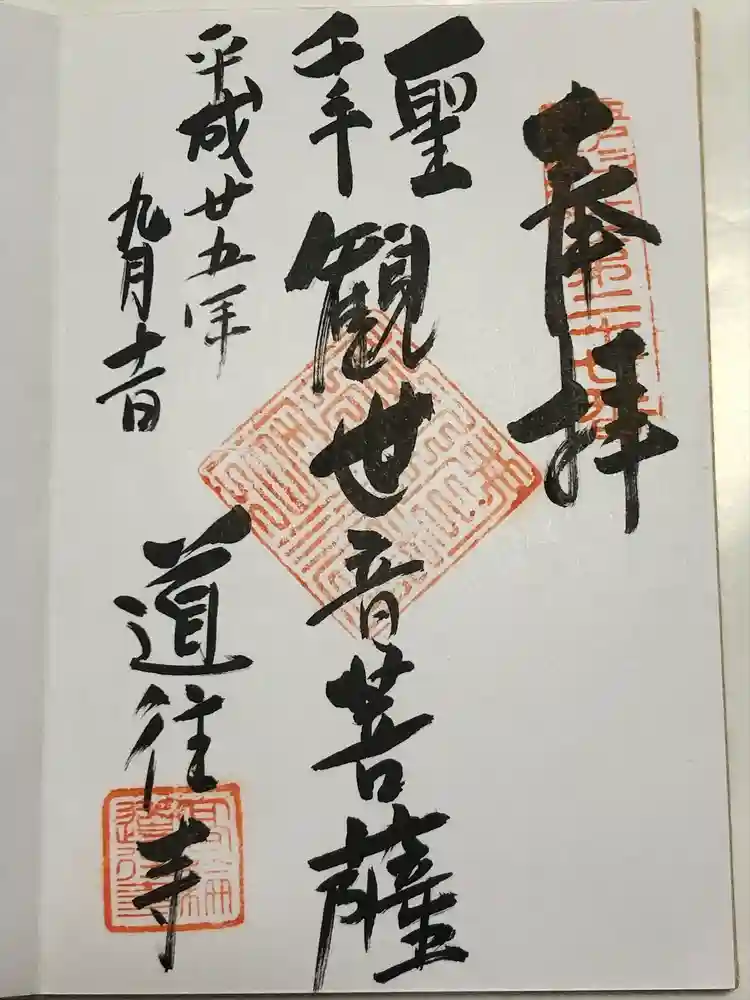 奉拝
聖
千手
観世音菩薩
平成廿五年
九月十一日
道往寺